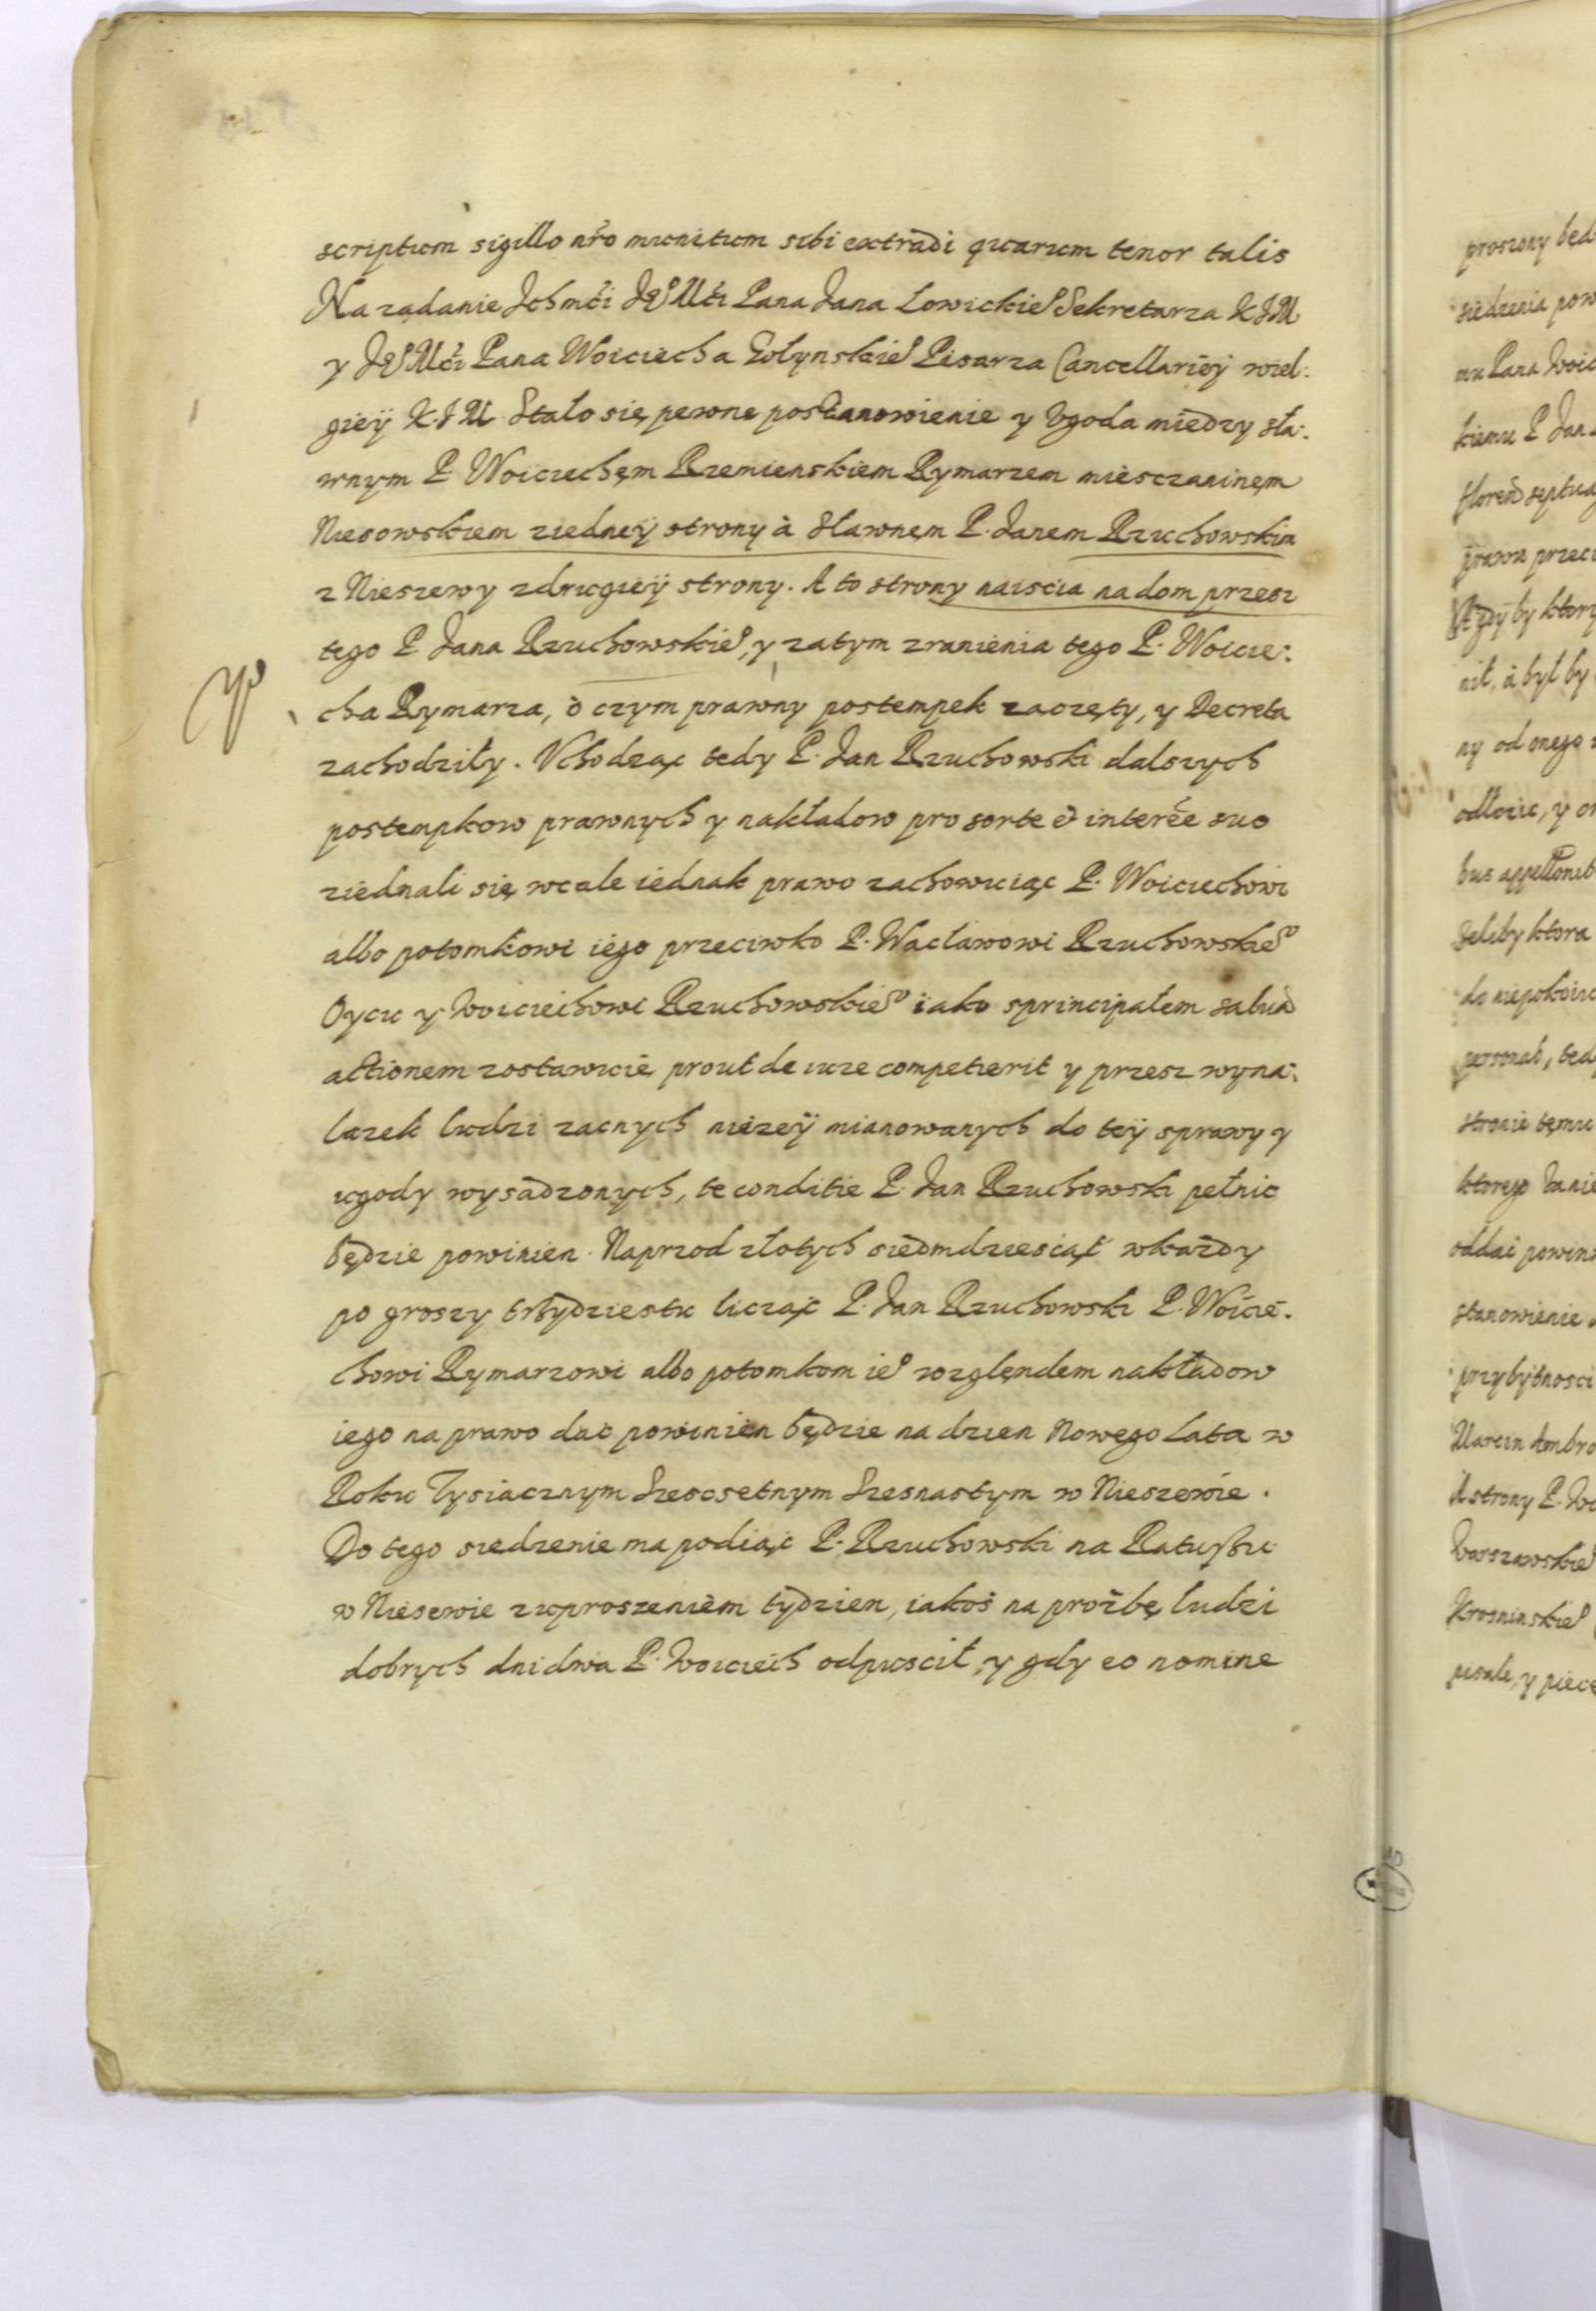 scriptum sigillo nr̃o munitum sibi extradi quarum tenor talis
Na ządanie Ichmči Jeº Mči Pana Jana Lowickieº Sekretarza K J M
y Jeº Mči Pana Woiciecha Gołynskieº Pisarza Cancellariey wiel:
giey K. J M Stało się pewne postanowienie y Vgoda między sła:
wnym P Woiciechęm Rzemienskiem Rymarzem miesczaninęm
Niesowskiem ziedney strony à Sławnęm P. Janem Rzuchowskim
z Nieszewy zdrugiey strony. A to strony naiscia na dom przesz
tego P Jana Rzuchowskieº, y zatym zranienia tego P. Woicie:
cha Rymarza, o czym prawny postempek zaczęty, y Decreta
zachodziły. Vchodząc tedy P. Jan Rzuchowski dalszych
postempkow prawnych y nakładow pro sorte et interẽe suo
ziednali się wcale iednak prawo zachowuiąc P. Woiciechowi
albo potomkowi iego przeciwko P. Wacławowi Rzuchowskieº
Oycu y Woiciechowi Rzuchowskieº iako sprincipałem salua
actionem zostawuie prout de iure competierit y przesz wyna:
lazek ludzi zacnych niżey mianowanych do tey sprawy y
ugody wysadzonych, te conditie P. Jan Rzuchowski pełnic
będzie powinien. Naprzod złotych siedmdziesiąt wkażdy
po groszy trzydziestu licząc P. Jan Rzuchowski P. Woicie:
chowi Rymarzowi albo potomkom ieº wzglęndem nakładow
iego na prawo dac powinien będzie na dzien Nowego Lata w
Roku Tysiącznym Szescsetnym Szesnastym w Nieszewie.
Do tego siedzenie ma podiąc P. Rzuchowski na Ratuszu
w Niesewie zuproszeniem tydzien, iakoż na prożbę ludzi
dobrych dni dwa P. Woiciech odpuscił, y gdy eo nomine
proszony będ
siedzenia pow
mu Pana Woic
kiemu P Jan
floren septua
prawa przeci
A gdy by ktory
nił, à był by
ny od onego
odłozic, y
Jeliby ktora
do niepokoiu
personal, ted
stronie temu
ktorego
oddac powin
stanowienie
przybytnosci
Marcin Ambro
A strony P. Wo
Warszawskieº
Krosninskieº
pisali, y piecę